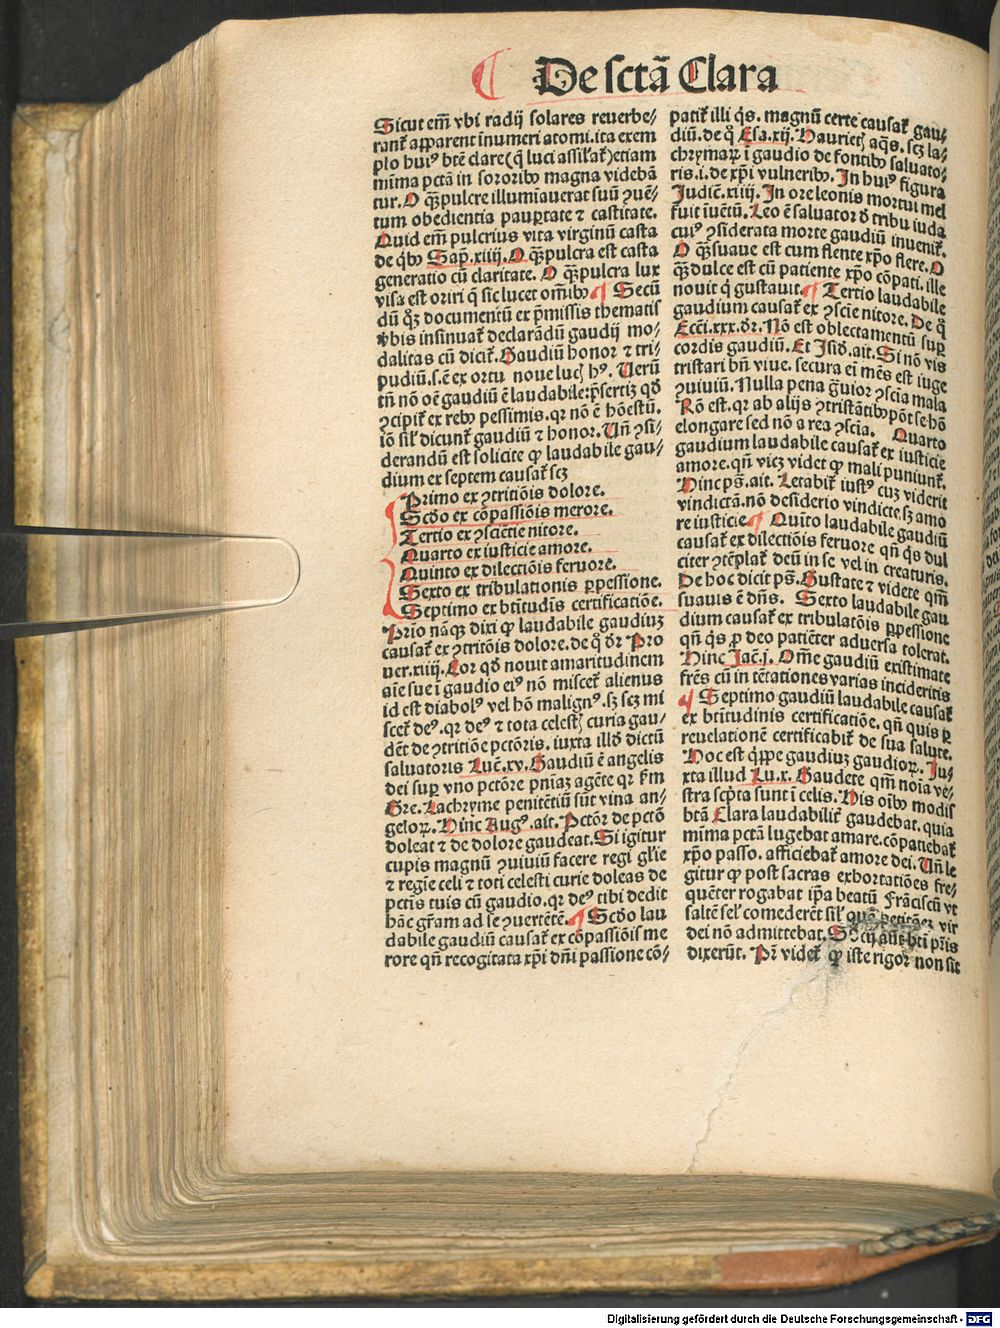 De sctā Clara
Sicut em̄ vbi radij solares reuerbe⸗
rant᷑ apparent īnumeri atomi.ita exem
plo hui⁹ btē clare(q̄ luci assil̓at᷑)etiam
mīma pctā in sororibꝰ magna videbā
tur. O qꝫ pulcre illumīauerat suū ꝯuē⸗
tum obedientia paup̱tate ⁊ castitate.
Quid em̄ pulcrius vita virginū casta
de qͥbꝰ Sap̄.iiij. O qꝫ pulcra est casta
generatio cū claritate. O qꝫ pulcra lux
visa est oriri q̄ sic lucet om̄ibꝰ ¶ Secū
dū qͦꝫ documentū ex p̄missis thematis
v̓bis insinuat᷑ declarādū gaudij mo⸗
dalitas cū dicit᷑. Gaudiū honor ⁊ tri⸗
pudiū.s.ē ex ortu noue luc hꝰ. Verū
tn̄ nō oē gaudiū ē laudabile:p̄sertiꝫ qd̓
ꝯcipit᷑ ex rebꝰ pessimis.qr nō ē hōestū.
iō sil̓ dicunt᷑ gaudiū ⁊ honor. Vn̄ ꝯsi⸗
derandū est solicite ꝙ laudabile gau⸗
dium ex septem causat᷑ scꝫ
Primo ex ꝯtritiōis dolore.
Scd̓o ex cōpassiōis merore.
Tertio ex ꝯsciētie nitore.
Quarto ex iusticie amore.
Quinto ex dilectiōis feruore.
Sexto ex tribulationis ꝑpessione.
Septimo ex btītudīs certificatiōe.
Prīo nāqꝫ dixi ꝙ laudabile gaudiuꝫ
causat᷑ ex ꝯtritiōis dolore.de qͦ dr̄ Pro
uer.xiiij. Cor qd̓ nouit amaritudinem
aīe sue ī gaudio ei⁹ nō miscet᷑ alienus
id est diabol⁹ vel hō malign⁹.sꝫ scꝫ mi
scet᷑ de⁹.qr de⁹ ⁊ tota celest curia gau⸗
dēt de ꝯtritiōe pctōris. iuxta illd̓ dictū
saluatoris Luē.xv. Gaudiū ē angelis
dei sup̱ vno pctōre pniaꝫ agēte qr ẜm
Gre. Lachryme penitētiū sūt vina an⸗
geloꝝ. Hinc Aug⁹.ait. Pctōr de pctō
doleat ⁊ de dolore gaudeat. Si igitur
cupis magnū ꝯuiuiū facere regi gl̓ie
⁊ regie celi ⁊ toti celesti curie doleas de
pctis tuis cū gaudio.qr de⁹ tibi dedit
hāc gr̄am ad se ꝯuertētē. ¶ Scd̓o lau
dabile gaudiū causat᷑ ex cōpassiōis me
rore qn̄ recogitata xp̄i dn̄i passione cō⸗
patit᷑ illi qͥs. magnū certe causat᷑ gau⸗
diū.de qͦ Esa.xij. Haurietꝭ aqͣs. scꝫ la⸗
chrymaꝝ ī gaudio de fontibꝰ saluato⸗
ris.i.de xp̄i vulneribꝰ. In hui⁹ figura
Judic̄.xiiij. In ore leonis mortui mel
fuit iuētū. Leo ē saluator d̓ tribu iuda
cui⁹ ꝯsiderata morte gaudiū inuenit᷑.
O qꝫ suaue est cum flente xp̄o flere. O
qꝫ dulce est cū patiente xp̄o cōpati. ille
nouit qͥ gustauit. ¶ Tertio laudabile
gaudium causat᷑ ex ꝯscie nitore. De qͦ
Ecc̄i.xxx.dr̄. Nō est oblectamentū sup̱
cordis gaudiū. Et Isid̓.ait. Si nō vis
tristari bn̄ viue. secura ei mēs est iuge
ꝯuiuiū. Nulla pena gͣuior ꝯscīa mala
Rō est.qr ab alijs ꝯtristātibꝰ pōt se hō
elongare sed nō a rea ꝯscīa. Quarto
gaudium laudabile causat᷑ ex iusticie
amore.qn̄ vicꝫ videt ꝙ mali puniunt᷑.
Hinc ps̄.ait. Letabit᷑ iust⁹ cuꝫ viderit
vindictā.nō desiderio vindicte.sꝫ amo
re iusticie ¶ Quīto laudabile gaudiū
causat᷑ ex dilectiōis feruore qn̄ qͥs dul
citer ꝯtēplat᷑ deū in se vel in creaturis.
De hoc dicit ps̄. Gustate ⁊ videte qm̄
suauis ē dn̄s. Sexto laudabile gau
dium causat᷑ ex tribulatōis ꝑpessione
qn̄ qͥs ꝓ deo patiēter aduersa tolerat.
Hinc Jac̄.j. Om̄e gaudiū existimate
fr̄es cū in tētationes varias incideritis
¶ Septimo gaudiū laudabile causat᷑
ex btītudinis certificatiōe. qn̄ quis ꝑ
reuelationē certificabit᷑ de sua salute.
Hoc est qͥppe gaudiuꝫ gaudioꝝ. Iu⸗
xta illud Lu.x. Gaudete qm̄ noīa ve⸗
stra scp̄ta sunt ī celis. His oībꝰ modis
btā Clara laudabilit᷑ gaudebat. quia
mīma pctā lugebat amare.cōpatiebat᷑
xp̄o passo. afficiebat᷑ amore dei. Vn̄ le
gitur ꝙ post sacras exhortatiōes fre⸗
quēter rogabat ip̄a beatū Frāciscū vt
saltē sel̓ comederēt sil̓ quē petitōeꝫ vir
dei nō admittebat. Socij aūt bt̄i pr̄is
dixerūt. Pr̄ videt᷑ ꝙ iste rigor non sit
Digitalisierung gefördert durch die Deutsche Forschungsgemeinschaft - DFG